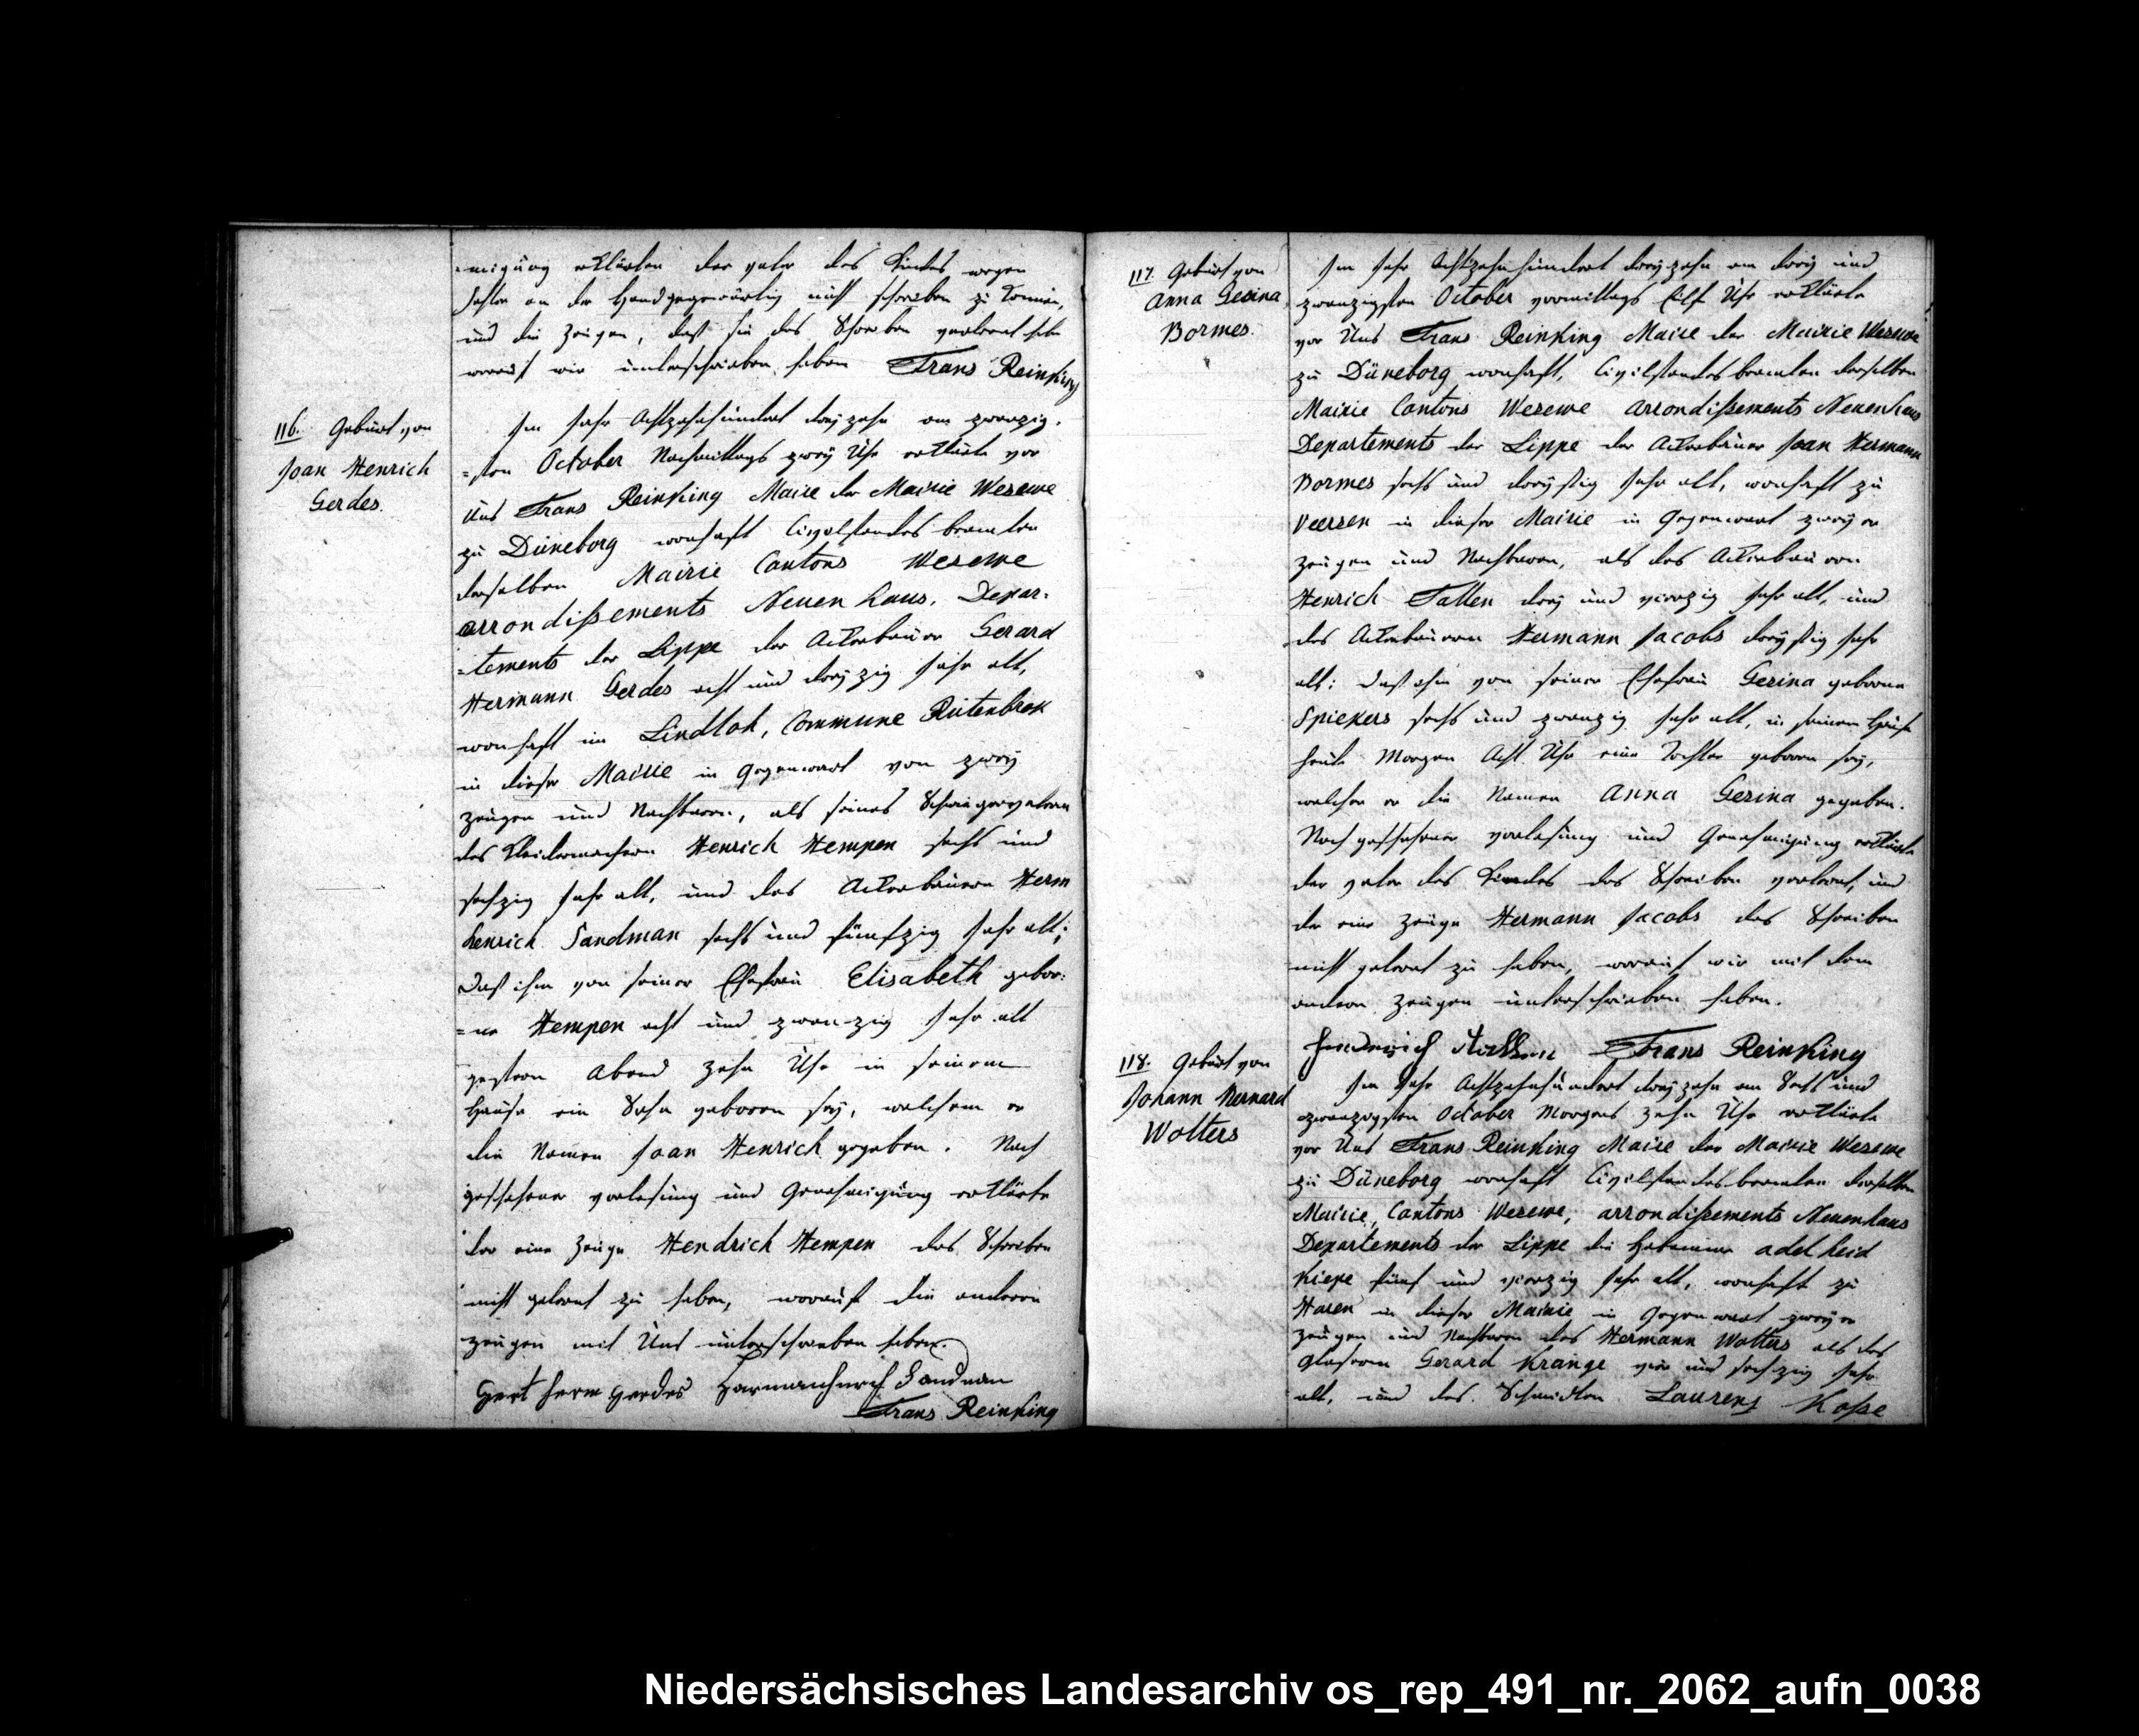 =migung erklärten der vater des Kindes wegen
fehler an der Hand gegenwärtig nicht schreiben zu können,
und die zeugen, daß sie das Schreiben verlernt habe
worauf wir unterschrieben haben Frans Reinking
116. Geburt von
Joan Henrich
Gerdes.
Im Jahr Achtzehnhundert dreyzehn am zwanzig=
=sten October Nachmittags zwey Uhr erklärte vor
Uns Frans Reinking Maire der Mairie Wesewe
zu Düneborg wonhaft Civilstandes beamten
derselben Mairie Cantons Wesewe
arrondißements Neuenhaus, Depar=
=tements der Lippe der Ackerbauer Gerard
Hermann Gerdes acht und dreyzig Jahr alt,
wonhaft im Lindloh, Commune Rütenbrok
in dieser Mairie in Gegenwart von zwey
zeugen und Nachbaren, als seines Schwiegervateren
des Kleidermachern Henrich Hempen sechs und
sechzig Jahr alt, und des Ackerbaueren Herm
henrich Sandman sechs und fünfzig Jahr alt;
Daß ihm von seiner Ehefrau Elisabeth gebor=
=ne Hempen acht und zwanzig Jahr alt
gestern Abend zehn Uhr in seinem
Hause ein Sohn geboren sey, welchem er
die Namen Joan Henrich gegeben. Nach
geschehener vorlesung und Genehmigung erklärte
der eine Zeuge Hendrich Hempen das Schreiben
nicht gelernt zu haben, worauf die anderen
zeugen mit Uns unterschrieben haben.
Gert herm gerdes Harmanhinrich Sandman
Frans Reinking
117. Geburt von
Anna Gesina
Bormes.
Im Jahr Achtzehnhundert dreyzehn am drey und
zwanzigsten October vormittags Eilf Uhr erklärte
vor Uns Frans Reinking Maire der Mairie Wesewe
zu Düneborg wonhaft, Civilstandes beamten derselben
Mairie Cantons Wesewe arrondißements Neuenhaus
Departements der Lippe der Ackerbauer Joan Hermann
Bormes sechs und dreyßig Jahr alt, wonhaft zu
Veersen in dieser Mairie in Gegenwart zweyer
zeugen und Nachbaren, als des Ackerbaueren
Henrich Tallen drey und vierzig Jahr alt, und
des Ackerbaueren Hermann Jacobs dreyßig Jahr
alt; Daß ihm von seiner Ehefrau Gesina geborne
Spiekers sechs und zwanzig Jahr alt, in seinem Hause
heute Morgen Acht Uhr eine Tochter geboren sey,
welcher er die Namen Anna Gesina gegeben.
Nach geschehener vorlesung und Genehmigung erklärte
der vater des Kindes das Schreiben verlernt, und
der eine zeuge Hermann Jacobs das Schreiben
nicht gelernt zu haben, worauf wir mit dem
anderen zeugen unterschrieben haben.
Frans Reinking
118. Geburt von
Johann Bernard
Wolters
Im Jahr Achtzehnhundert dreyzehn am Sechs und
zwanzigsten October Morgens zehn Uhr erklärte
vor Uns Frans Reinking Maire der Mairie Wesewe
zu Düneborg wonhaft Civilstandes beamten derselben
Mairie, Cantons Wesewe, arrondißements Neuenhaus
Departements der Lippe die Hebamme adelheid
Kiepe fünf und vierzig Jahr alt, wonhaft zu
Haren in dieser Mairie in Gegenwart zweyer
zeugen und Nachbaren des Hermann Wolters als des
Glasern Gerard Krange vier und sechzig Jahr
alt, und des Schmidten Laurens Koße
Niedersächsisches Landesarchiv os_rep_491_nr._2062_aufn_0038